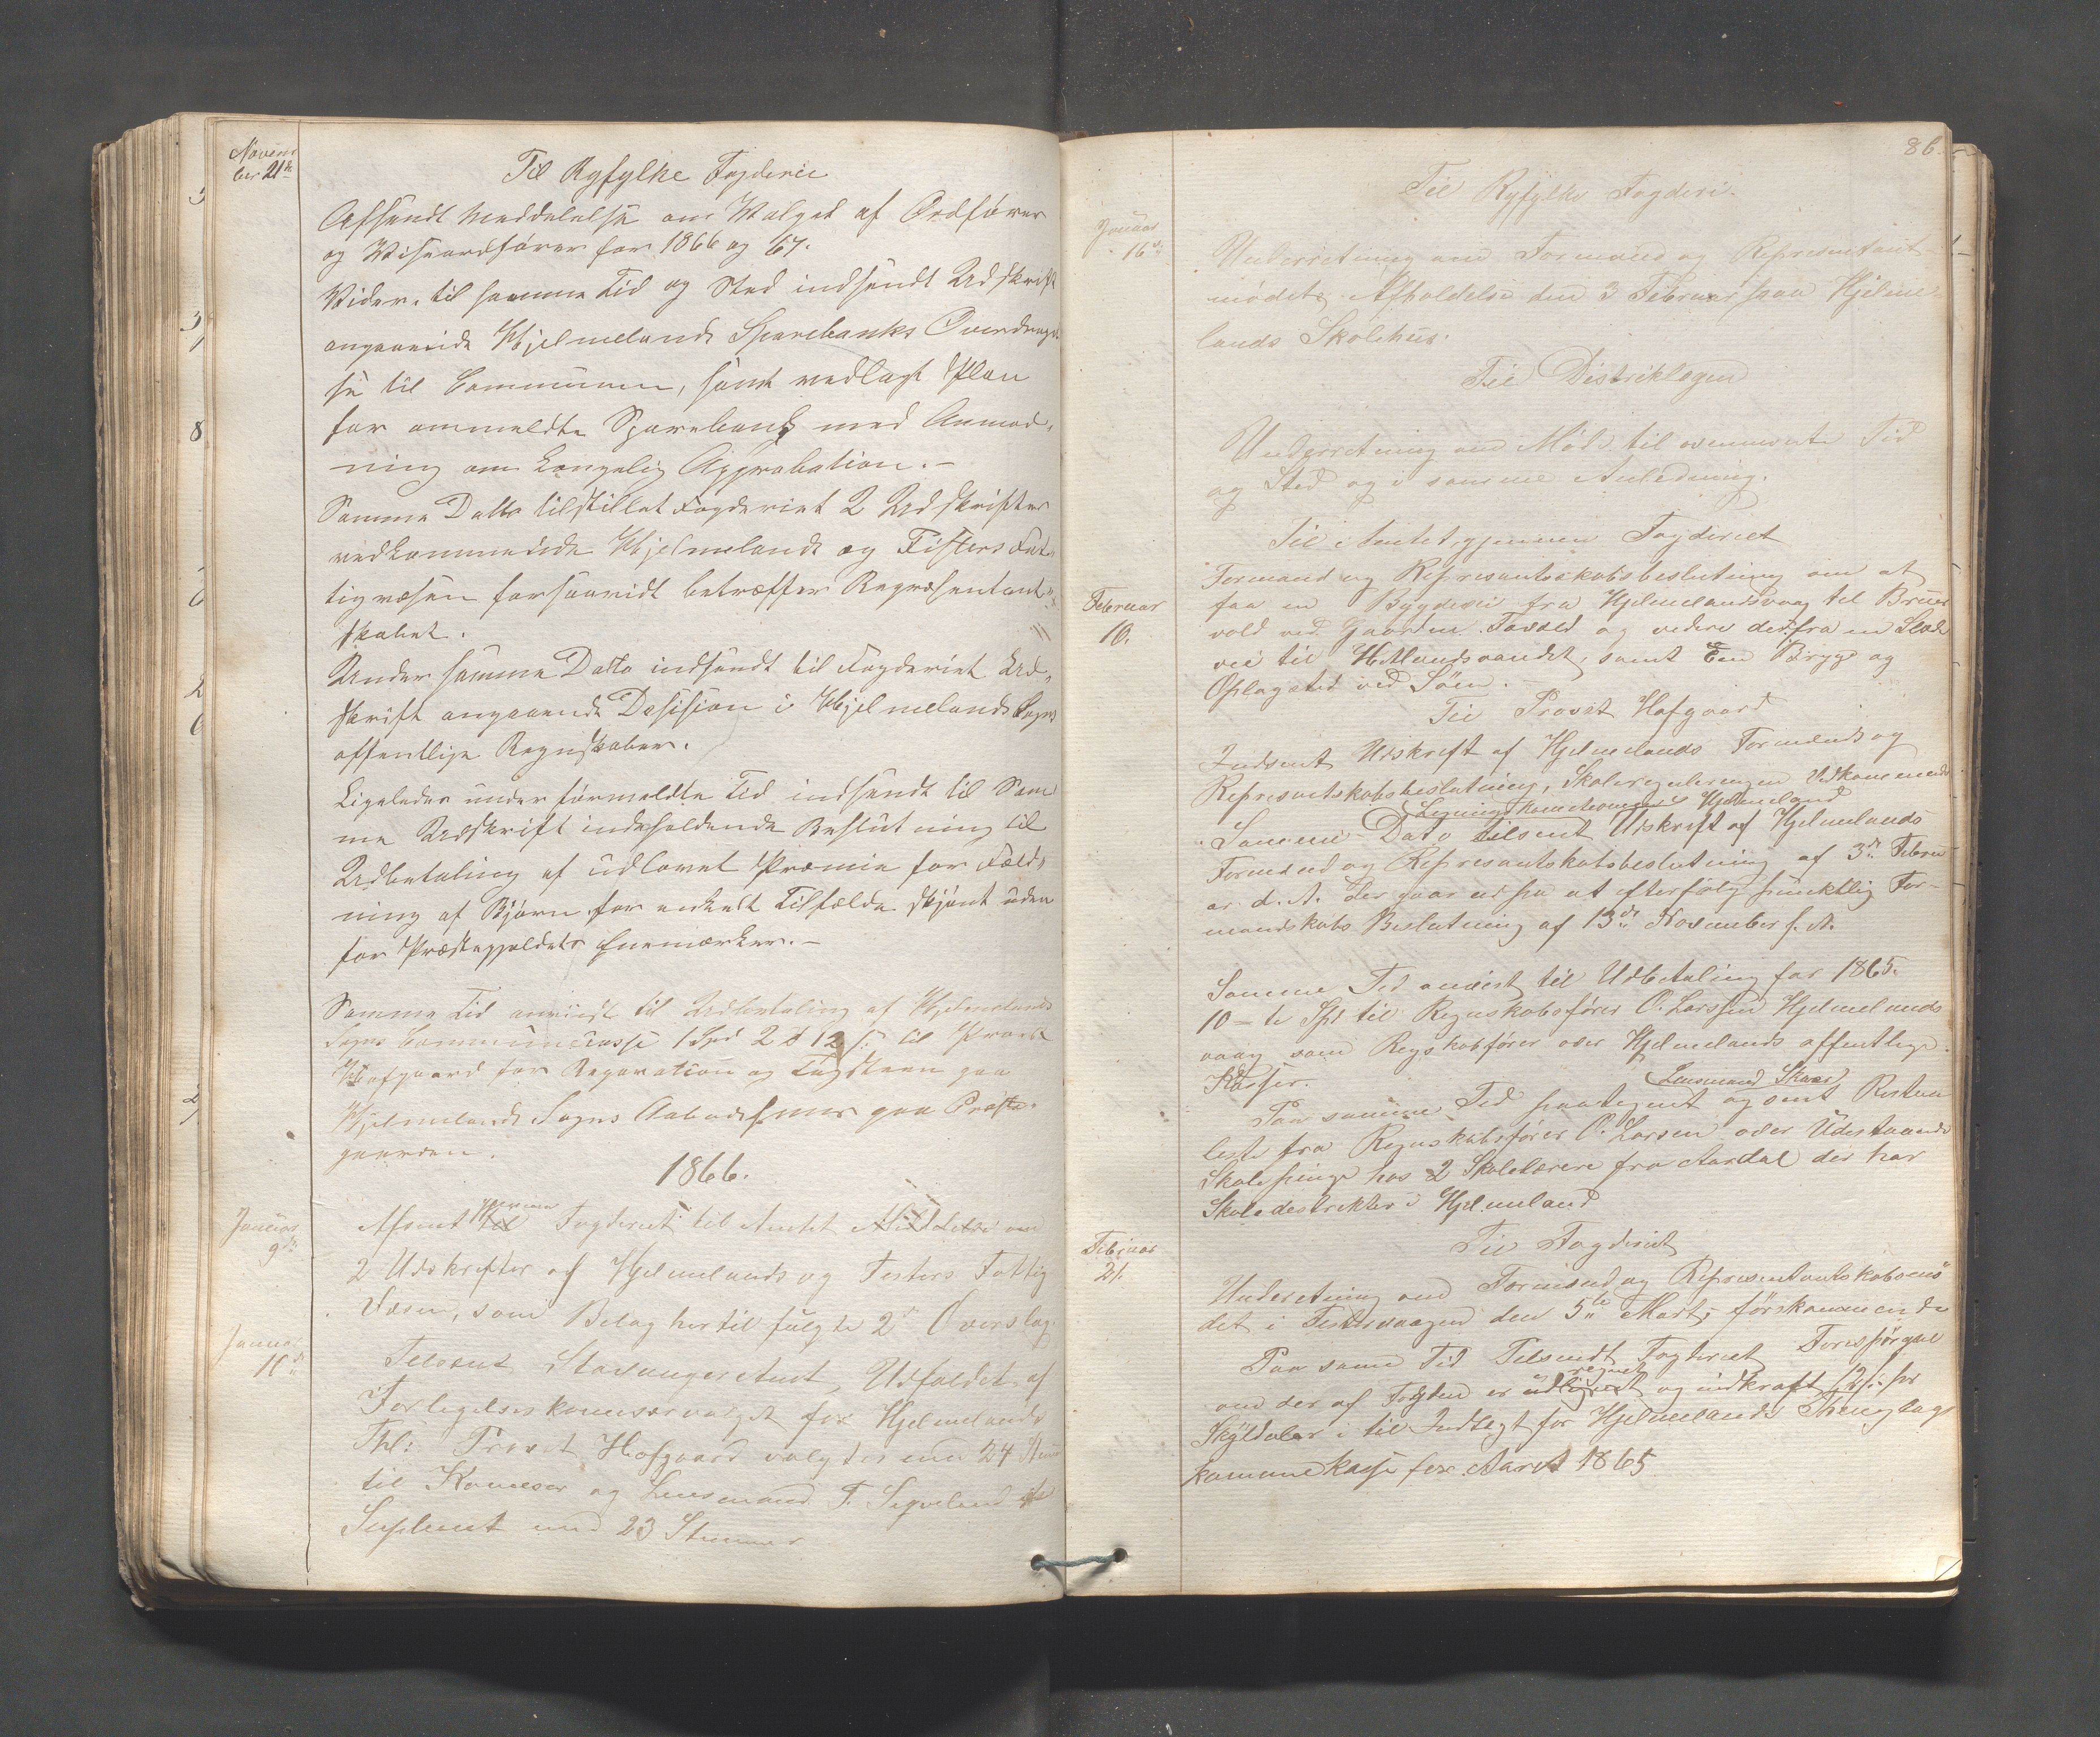 Novem
ber 21de
Til Ryfylke Fogderie
Afsendt Meddelelse om Valget af Ordfører
og Viseordfører for 1866 og 67.
Vider. til samme Tid og Sted indsendt Udskrift
angaaende Hjelmelands Sparebanks Overdragel
se til Communen, samt vedlagt Plan
for ommeldte Sparebank med Anmod,
ning om kongelig Approbation.-
Samme Datto tilstillet Fogderiet 2 Udskrifter
vedkommende Hjelmelands og Fisters Fat,
tigvæsen forsaavidt betræffer Repræsentant,
skabet.
Under samme Datto indsendt til Fogderiet Ud,
skrift angaaende Desision i Hjelmelands Sogns
offentlige Regnskaber.
Ligeledes under førmeldte Tid indsendt til Sam
me Udskrift indeholdende Beslutning til
Udbetaling af udlovet Præmie for Fæld,
ning af Bjørn, for enkelt Tilfælde skjønt uden
for Præstegjeldets Enemærker.-
Samme Tid anviist til Udbetaling af Hjelmelands
Sogns Communecasse 1 Spd 2 # 12 s: til Provst
Hofgaard for Reparation og Tagsteen paa
Hjelmelands Sogns paa Præste,
gaarden.
1866.
Januar
9de
Afsent til Fogderiet til Amtet Meddelelse om
2 Udskrifter af Hjelmelands og Fisters Fattig
Væsen, som Belag hertil fulgte 2de Overslag.
Januar
11de
Telsent Stavanger Amt, Udfaldet af
Forligelseskomisærvalget for Hjelmelands
Thl: Provst Hofgaard valgtes med 24 Stem
til Komesær og Lensmand T. Segveland
Suplent med 23 Stemmer
86.
Til Ryfylke Fogderi.
Januar
16de
Underretning om Formand og Representant
mødets Afholdelse den 3 Februar paa Hjelme-
lands Skolehus.
Til Distriktlegen
Underretning om Møde til ovennevnte Tid
og Sted og i samme Anledning.
Til Amtet gjennem Fogderiet
Februar
10.
Formand og Represantskabsbeslutning om at
faa en Bygdevei fra Hjelmelandsvaag til Bruer
vold ved Gaarden Tavold og videre dedfra en Slæde
vei til Hetlandsvandet, samt En Brygge og
Oplagsted ved Søen.
Til Provst Hofgaard
Indsent Udskreft af Hjelmelands Formænds og
Represantskabsbeslutning, Skoleregulerengen Vedkommende
Hjelmeland
Samme Dato tilsent Utskreft af Hjelmelands
Formænd og Represantskabsbeslutning af 3de Febru
ar d. A. Der gaar ud paa at efterfølg punktlig For-
mandskabs Beslutning af 13de November f. A.
Samme Ted anvist til Udbetaling for 1865.
10 - te Spd til Regnskabsfører O. Larssen Hjelmelands
vaag som Regskabfører over Hjelmelands offentlege
Kasser.
Lensmand Skaar
Paa samme Ted paategnet og sent Restan
leste fra Regnskabsfører O. Larsen over Udestaaende
Skolepenge hos 2 Skolelærere fra Aardal der har
Skoledestrekter i Hjelmeland
Februar
21.
Til Fogderiet
Underetning om Formænd og Representantskabsmø
det i Festervaagen den 5te Marts førstkommende
Paa samme Tid Telsendt Fogderiet Forespørgsel
regnet
om der af Fogden er udlignet og indkræft 12 s: pr
Skylddaler i til Indtegt for Hjelmelands Thenglags
kommunekasse for Aaret 1865